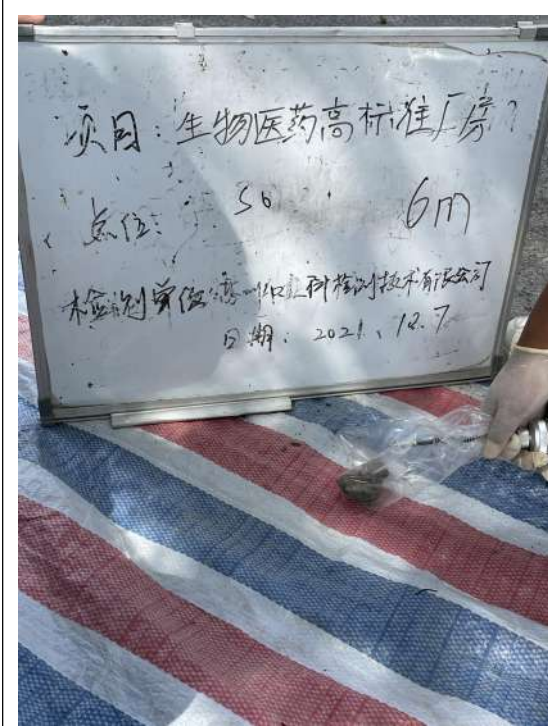 项目:生物医药高标准厂房
点位: S6 6m
检测单位:惠州 科检测技术有限公司
日期:2021、12.7